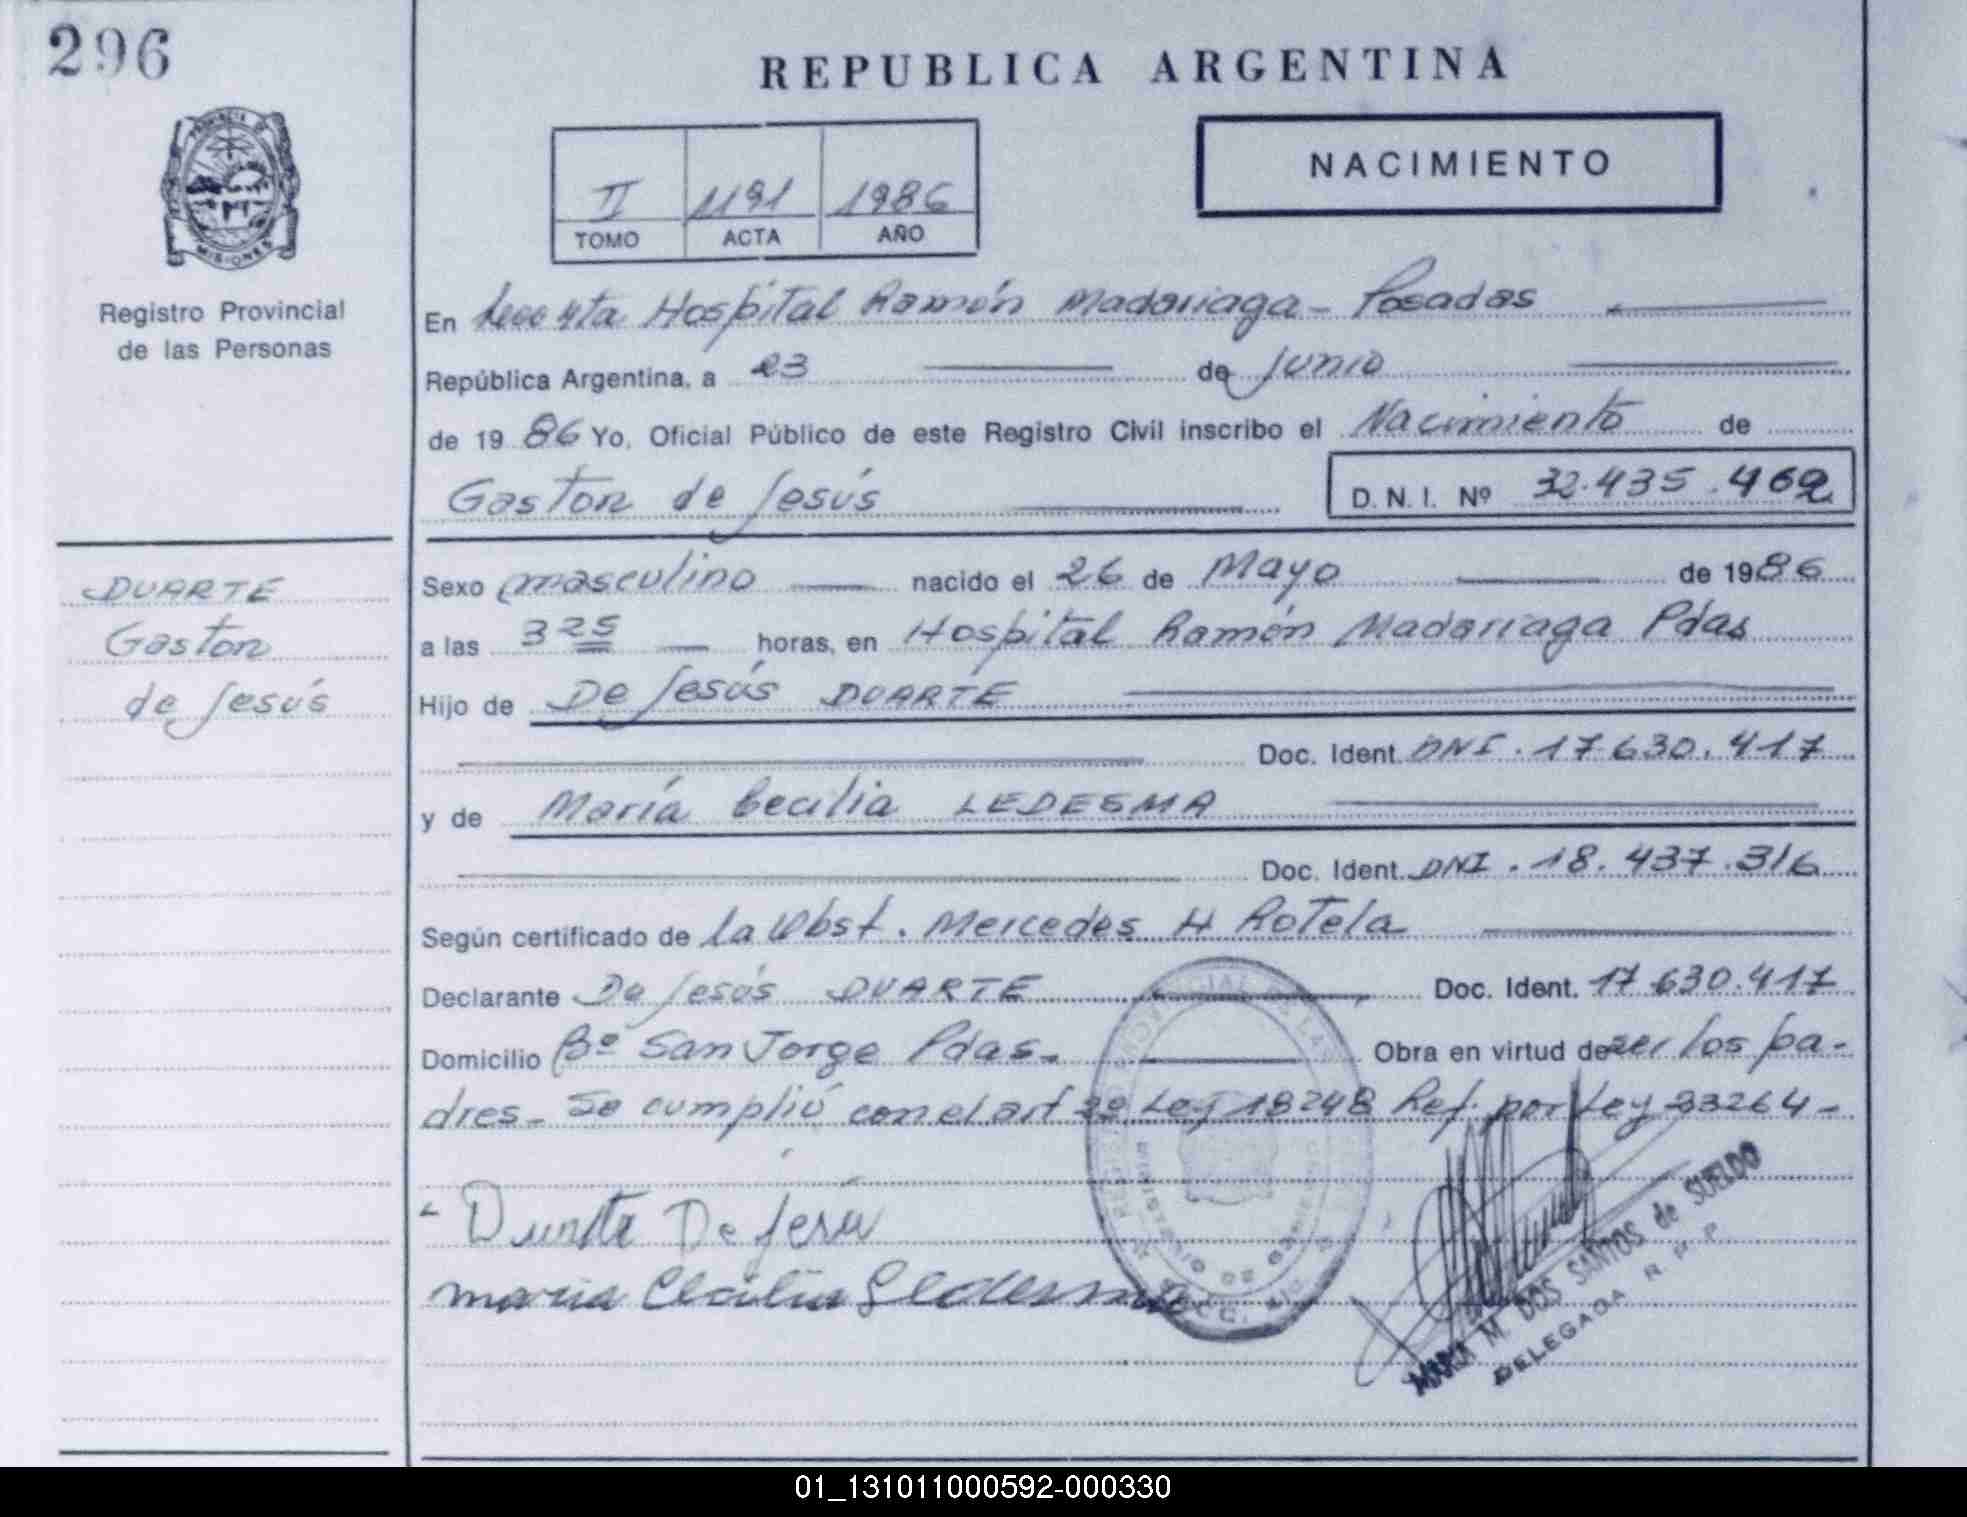 296
REPUBLICA ARGENTINA
NACIMIENTO
II 1191 1986
TOMO ACTA AÑO
PROVINCIA DE
MISIONES
Registro Provincial
de las Personas
En Hospital Ramón Madariaga - Posadas
República Argentina, a 23 de junio
de 19 86 Yo, Oficial Público de este Registro Civil inscribo el Nacimiento de
Gaston de Jesús D. N. I. Nº 32.435.462
DUARTE
Gaston
de Jesús
Sexo masculino nacido el 26 de Mayo de 1986
a las 3 25 horas, en Hospital Ramón Madariaga Pdas
Hijo de De Jesús DUARTE
Doc. Ident. DNI. 17.630.417
y de María Cecilia LEDESMA
Doc. Ident. DNI. 18.437.316
Según certificado de la Obst. Mercedes H Rotela
Declarante De Jesús DUARTE Doc. Ident. 17.630.417
Domicilio Bº San Jorge Pdas. Obra en virtud de ser los pa-
dres - Se cumplió con el art 2º Ley 18248 Ref. por Ley 23264 -
Duarte De Jesu
maria Cecilia Ledesma
MARIA M. DOS SANTOS de SUELDO
DELEGADA R. P. P.
01_131011000592-000330